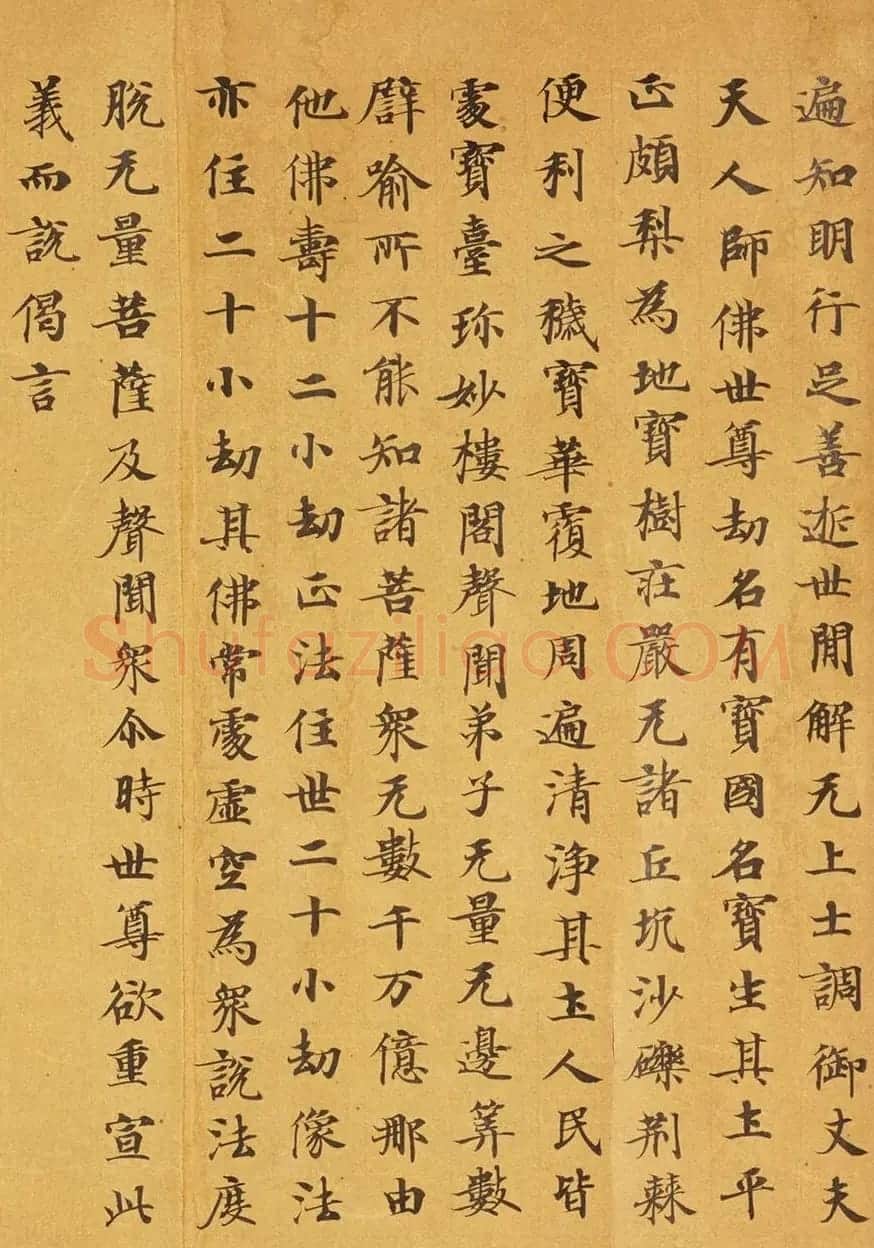 遍知明行足善逝世間解无上士調御丈夫
天人師佛世尊劫名有寶國名寶生其土平
正頗梨為地寶樹莊嚴无諸丘坑沙礫荊棘
便利之穢寶華覆地周遍清淨其土人民皆
處寶臺珎妙樓閣聲聞弟子无量无邊筭數
譬喻所不能知諸菩薩衆无數千万億那由
他佛壽十二小劫正法住世二十小劫像法
亦住二十小劫其佛常處虛空為衆說法度
脫无量菩薩及聲聞衆尒時世尊欲重宣此
義而說偈言
Shufaziliao.COM